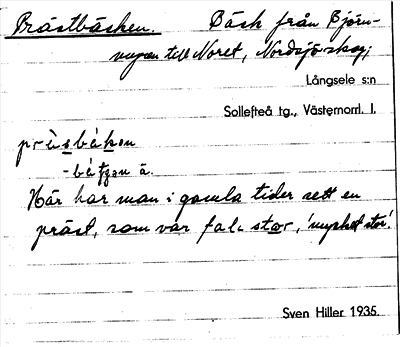 Prästbäcken. Bäck från Björn-
myran till Noret, Nordsjö skog;
Långsele s:n
Sollefteå tg., Västernorrl. l.
prèsbɛ́kən
-bɛ́tʃən ä.
Här har man i gamla tider sett en
präst, som var fale stor, 'mycket stor'.
Sven Hiller 1935.